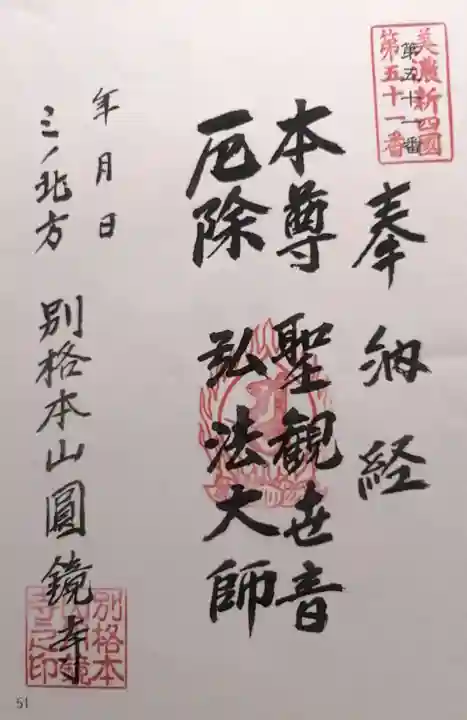 美濃新四國
第五十一番
第五十一番
奉納経
本尊 聖観世音
厄除 弘法大師
年月日
ミノ北方 別格本山圓鏡寺
別格本
山圓鏡
寺之印
51